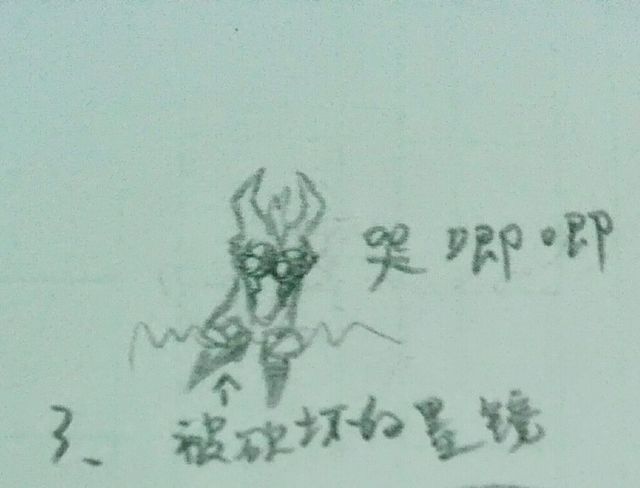 哭唧唧
3、被破坏的星镜